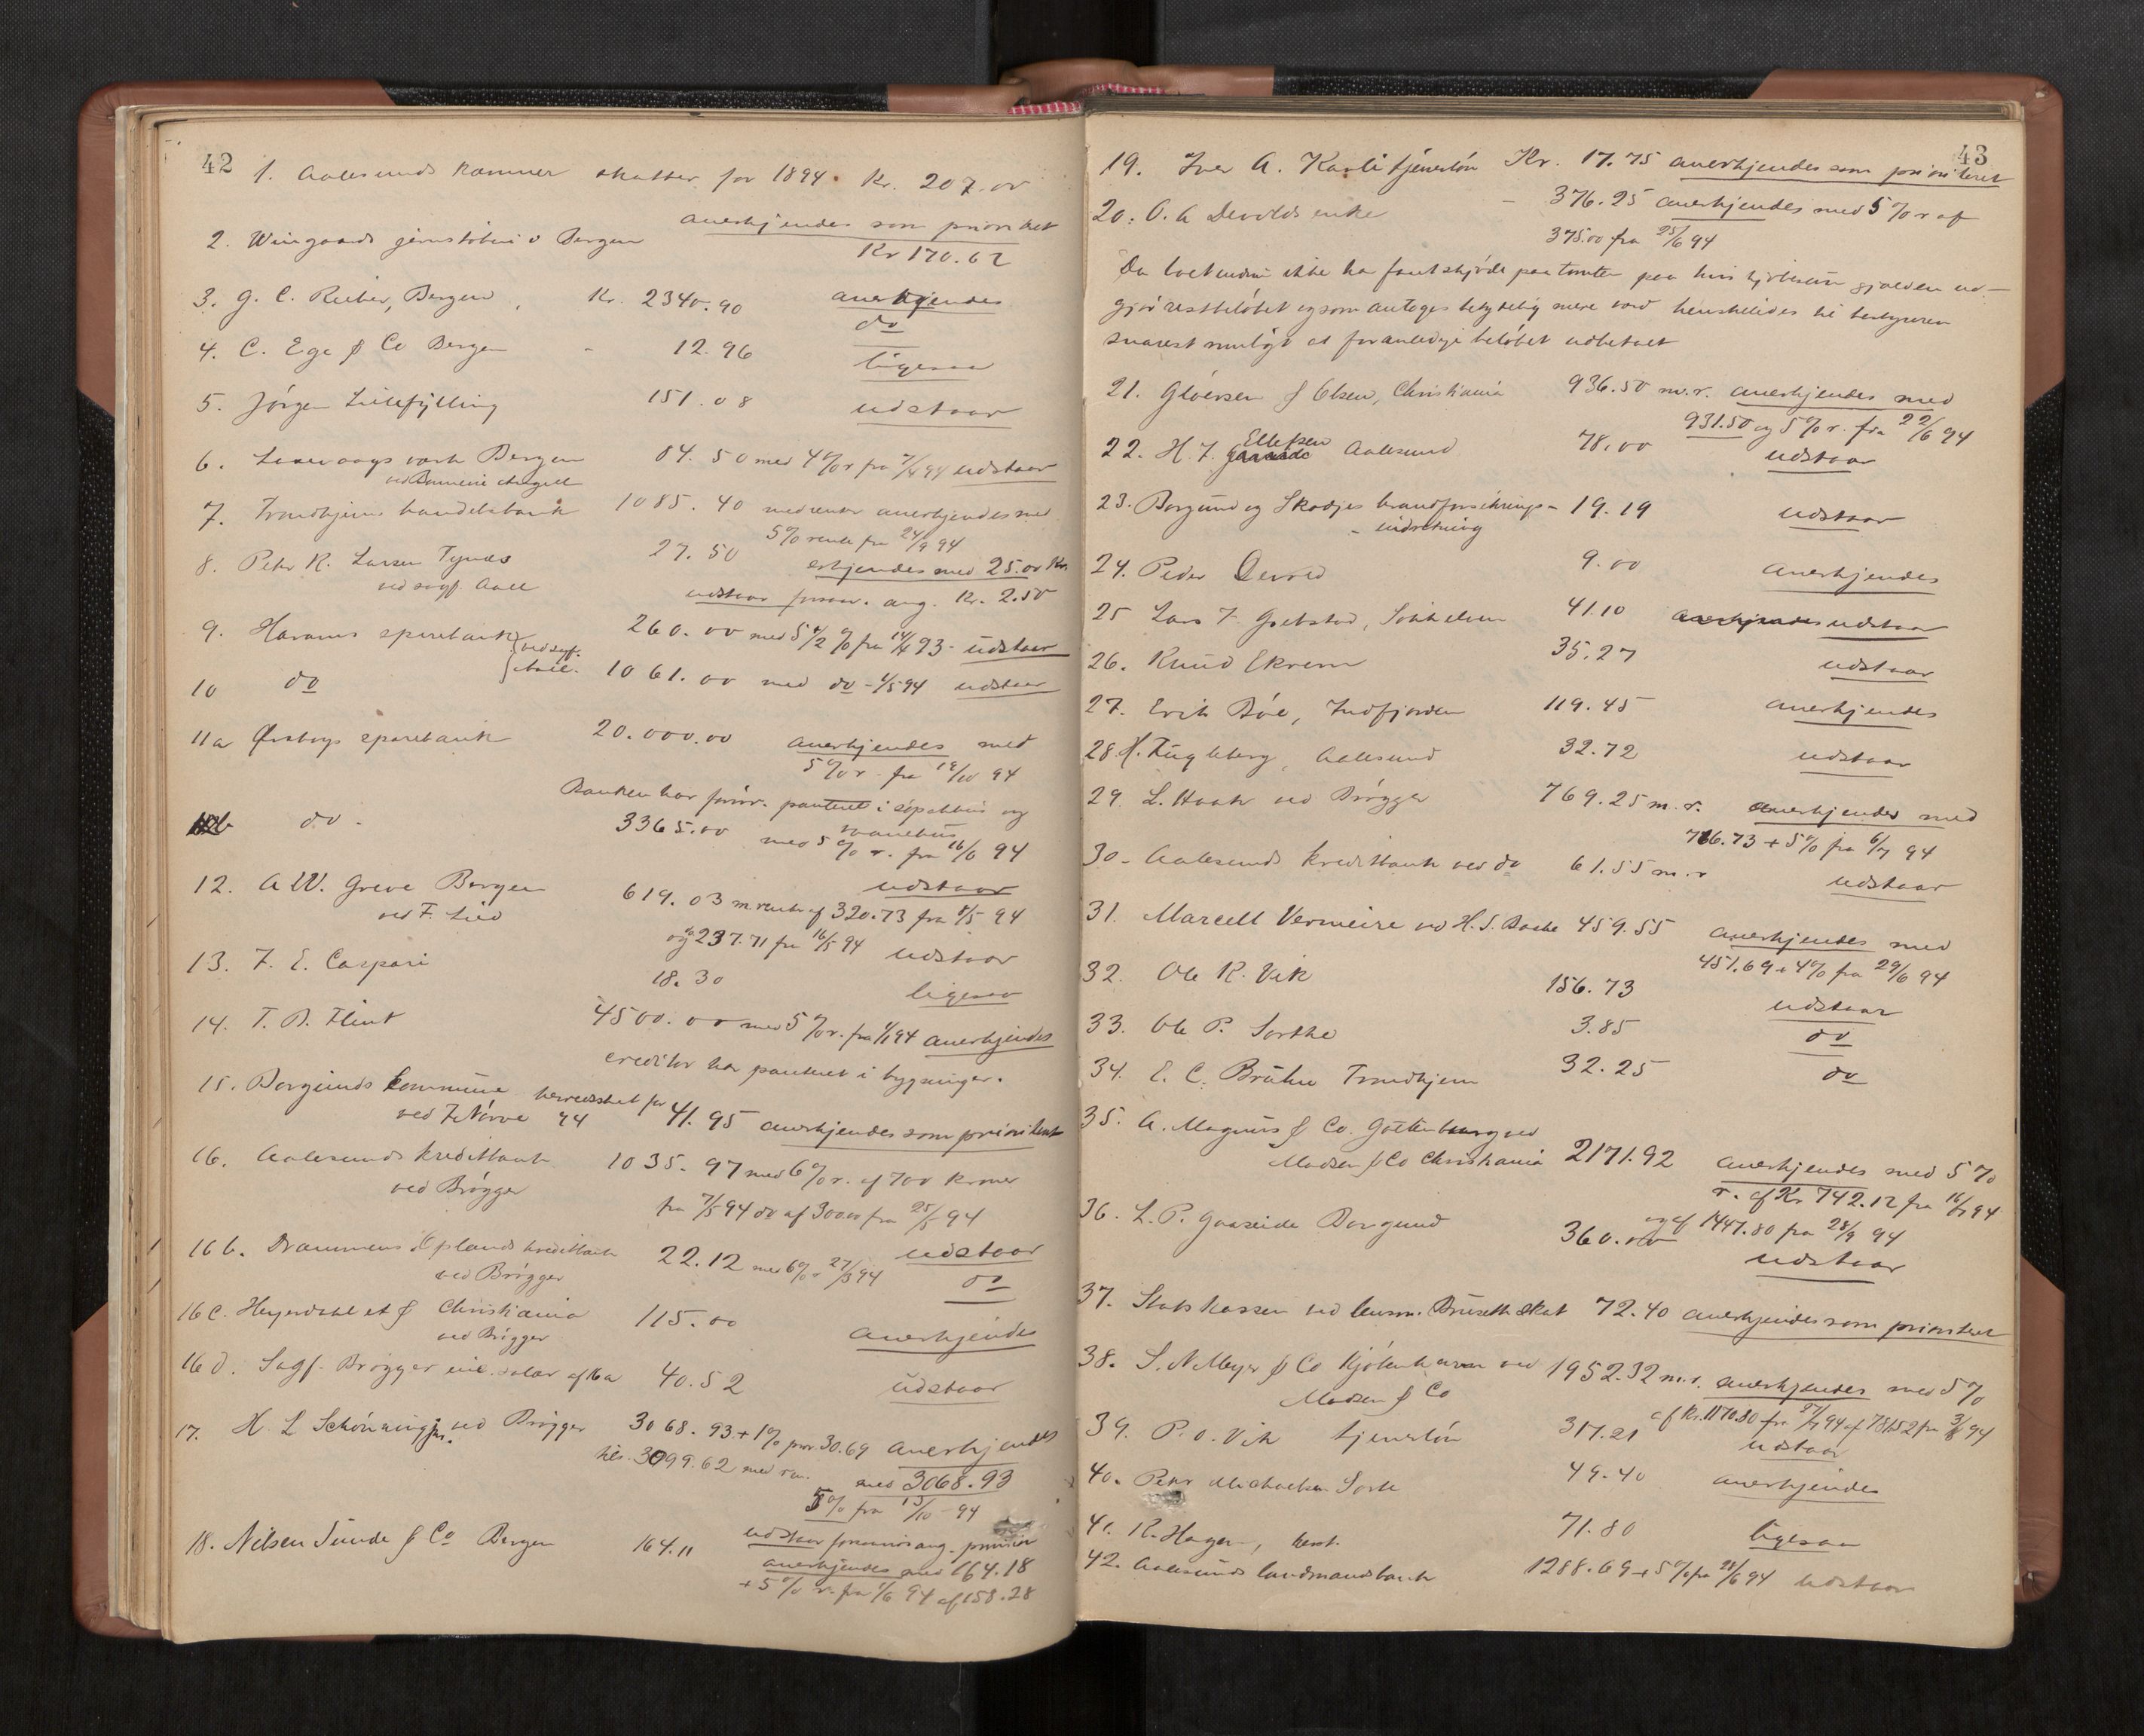 42
1. Aalesunds kæmner skatter for 1894. Kr. 207.00
anerkjendes som prioritet
Kr 170.62
2. Wingaards jernstøberi v Bergen
3. G. C. Rieber, Bergen, Kr. 2340.90 anerkjendes
do
4. C. Ege & Co Bergen - 12.96 ligesaa
5. Jørgen Lillefylling 151.08 udstaar
6. Laxevaags værk Bergen 84.50 med 4% r fra 7/4 94 udstaar
7. Trondhjems handelsbank 1085.40 med renter anerkjendes med
5% rente fra 24/9 94
8. Peter R. Larsen Tynæs 27.50 erkjendes med 25.00 Kr.
ved sagf. Aall udstaar forøvr. ang. Kr. 2.50
9. Harams sparebank ved sagf. Aall. 260.00 med 5 1/2 % fra 14/4 93 - udstaar
10 do 1061.00 med do - 1/5 94 udstaar
11a Ørskogs sparebank 20.000.00 anerkjendes med
5% r. fra 19/10 94
Banken har forøvr. panteret i og
11b do. 3365.00 med 5% r. fra 16/6 94
udstaar
12. A W. Greve Bergen 619.03 m. rente af 320.73 fra 8/5 94
ved F. Lied og 237.71 fra 16/5 94 udstaar
13. F. E. Caspari 18.30 ligesaa
14. T. B. Flint 4500.00 med 5% r. fra 1/1 94 anerkjendes
creditor har panteret i bygninger.
15. Borgunds kommune herredsskat for 41.95 anerkjendes som prioritert
ved 94
16. Aalesunds kreditbank 1035.97 med 6% r. af 700 kroner
ved Brøgger fra 7/5 94 do af 300.00 fra 25/5 94
udstaar
16 b. Drammens Oplands kreditbank 22.12 med 6% r 27/3 94 do
ved Brøgger
16 c. Heyerdahl et & Christiania 115.00 anerkjendes
ved Brøgger
16 d. Sagf. Brøgger inc. salær af 16 a 40.52 udstaar
17. H. L Schønningjr. ved Brøgger 3068.93 + 1% prov. 30.69 anerkjendes
tils. 3099.62 med med 3068.93
5% fra 13/10 - 94
18. Nilsen Sunde & Co Bergen 164.11 udstaar forøvrig ang. provision
anerkjendes med 164.18
+ 5% r. fra 1/6 94 af 158.28
43
19. Iver A. Karli tjenerløn Kr. 17.75 anerkjendes som prioriteret
20. O. A Devolds enke - 376.25 anerkjendes med 5% r af
375.00 fra 25/6 94
Da boet endnu ikke har faaet skjøde paa tomten paa hvis kjøbesum gjælden ud-
gjør restbeløbet og som antages betydelig mere værd henstilledes til bestyreren
snarest muligt at foranledige beløbet udbetalt
21. Gløersen & Olsen, Christiania 936.50 m.r. anerkjendes med
931.50 og 5% r. fra 22/6 94
22. H. J. Ellefsen Aalesund 78.00 udstaar
23. Borgund og Skodjes brandforsikrings- 19.19 udstaar
- indretning
24. Peder Devold 9.00 anerkjendes
25 Lars J. Grebstad, Sökkelven 41.10 anerkjendes udstaar
26. Knud Ekrem 35.27 udstaar
27. Erik Bøe, Indfjorden 119.45 anerkjendes
28. H. Fugleberg, Aalesund 32.72 udstaar
29. L. Haake ved Brøgger 769.25 m.r. anerkjendes med
716.73 + 5% fra 6/7 94
30. Aalesunds kreditbank ved do 61.55 m.r udstaar
31. Marcell Vermeire ved H. S. Bache 459.55 anerkjendes med
451.69 + 4% fra 29/6 94
32. Ole R. Vik 156.73 udstaar
33. Ole P. Sorthe 3.85 do
34. E. C. Brühn Trondhjem 32.25 do
35. A. Magnus & Co. Gøtteborg ved
Madsen & Co Christiania 2171.92 anerkjendes med 5%
r. af Kr 742.12 fra 16/7 94
og af 1447.80 fra 28/9 94
36. L. P. Gaaseide Borgund 360.00 udstaar
37. Statskassen ved lensm. Bruseth skat 72.40 anerkjendes som prioriteret
38. S. N Meyer & Co Kjøbenhavn ved 1952.32 m.r. anerkjendes med 5%
Madsen & Co af Kr. 1170.80 fra 27/7 94 af 781.52 fra 3/8 94
39. P. O. Vik tjenerløn 317.21 udstaar
40. Peter Michaelsen Sorte 49.40 anerkjendes
41. K. Hagen, herst. 71.80 ligesaa
42. Aalesunds landmandsbank 1288.69 + 5% fra 28/6 94 udstaar